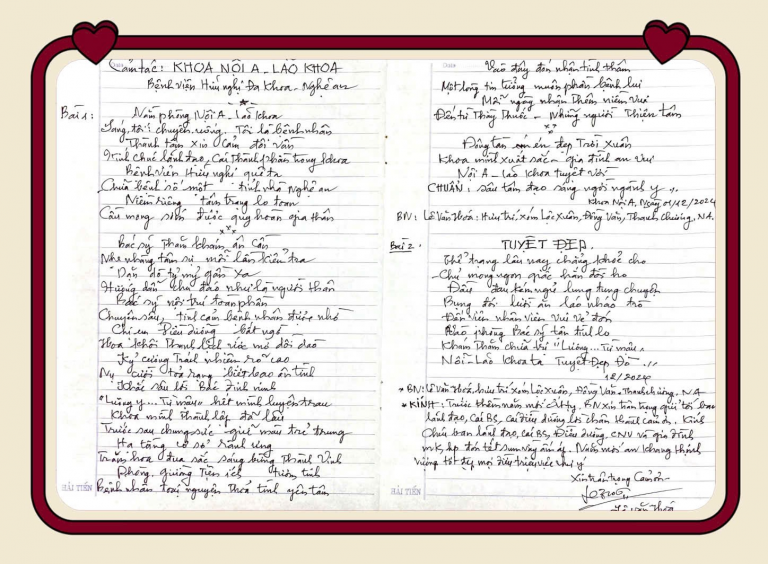 Cảm tác: KHOA NỘI A - LÃO KHOA
Bệnh viện Hữu nghị Đa Khoa Nghệ an
Bài 1: Năm phòng Nội A - Lão khoa
Tôi là bệnh nhân
Thành tâm xin cảm đôi vần
lãnh đạo, trong khoa
Bệnh viện Hữu nghị quê ta
Chữa bệnh số một tỉnh nhà Nghệ an
Niềm riêng tâm trạng lo toan
Cầu mong sớm được quy hoan gia thân
Bác sỹ thăm khám ân cần
Nhẹ nhàng tâm sự mỗi lần kiểm tra
Dặn dò tỷ mỷ gần xa
Hướng dẫn chu đáo như là người thân
Bác sỹ nội trú toàn phần
Chuyên sâu, tình cảm bệnh nhân được nhờ
Chị em Điều dưỡng bất ngờ
Hoa khôi thanh lịch ước mơ dồi dào
Kỷ cương trách nhiệm rõ cao
Nụ cười tỏa rạng biết bao ân tình
Khắc sâu lời Bác
"Lương y... Từ mẫu" hết mình luyện trau
Khoa mình
Trước sau chung sức giữ màu trẻ trung
Hạ tầng cơ sở
Trăm hoa đua sắc sáng bừng Thành Vinh
Phòng giường tiện ích
Bệnh nhân toại nguyện thỏa tình yên tâm
Vào đây đón nhận tình thâm
Một lòng tin tưởng muôn phần bệnh lui
Mỗi ngày nhận thêm niềm vui
Đến từ Thầy Thuốc - Những người Thiện tâm
Đông tàn én đẹp Trời Xuân
Khoa mình xuất sắc - gia đình an vui
Nội A - Lão khoa tuyệt vời
CHUẨN: sâu tâm đạo sáng ngời ngành y...
Khoa Nội A, Ngày 01/12/2024
BN: Lê Văn Thoá: Hưu trí, xóm Lộc Xuân, Đồng Văn, Thanh Chương, NA.
Bài 2: TUYỆT ĐẸP.
Thể trạng lâu nay chẳng khoẻ cho
Chú mong ngon giấc hẳn đời ho
Đầu đau kém ngủ lung tung chuyện
Bụng đói lười ăn
Đội viên nhân viên vui vẻ đón
phòng Bác sỹ
Khám Thăm chữa trị "Lương... Từ mẫu"
Nội Lão Khoa ta Tuyệt Đẹp Đó...
12/2024
* BN: Lê Văn Thoá, hưu trí xóm Lộc Xuân, Đồng Văn - Thanh Chương, NA
* KÍNH: Trước thềm năm mới BN xin trân trọng gửi tới ban
lãnh đạo, cái BS, cái điều dưỡng lời chân thành cảm ơn. Kính
chúc ban lãnh đạo, cái BS, Điều dưỡng, CNV và gia đình
đón tết sum vầy ấm áp. Năm mới an khang thịnh
vượng tốt đẹp mọi điều triệu việc như ý
Xin trân trọng Cảm ơn
Lê Văn Thoá
HẢI TIẾN
HẢI TIẾN